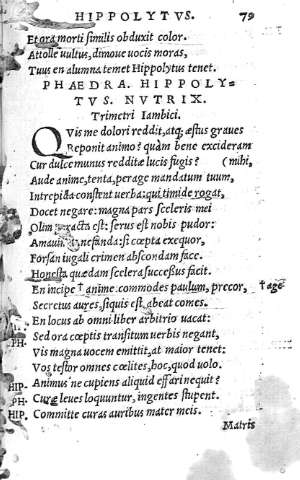 HIPPOLYTVS. 79
Et ora morti similis obduxit color.
Attolle uultus, dimoue uocis moras,
Tuus en alumna temet Hippolytus tenet.
PHAEDRA. HIPPOLY-
TVS. NVTRIX.
Trimetri Iambici.
QVis me dolori reddit, atq; æstus graues
Reponit animo? quàm bene excideram
Cur dulce munus redditæ lucis fugis? (mihi,
Aude anime, tenta, perage mandatum tuum,
Intrepida constent uerba: qui timide rogat,
Docet negare: magna pars sceleris mei
Olim peracta est: serus est nobis pudor:
Amaui nefanda: si cœpta exequor,
Forsan iugali crimen abscondam face.
Honesta quædam scelera successus facit.
En incipe † anime. commodes paulum, precor, † age
Secretus aures, siquis est, abeat comes.
En locus ab omni liber arbitrio uacat:
PH. Sed ora cœptis transitum uerbis negant,
Vis magna uocem emittit, at maior tenet:
Vos testor omnes cœlites, hoc, quod uolo.
HIP. Animus ne cupiens aliquid effari nequit?
PH. Curæ leues loquuntur, ingentes stupent.
HIP. Committe curas auribus mater meis.
Matris